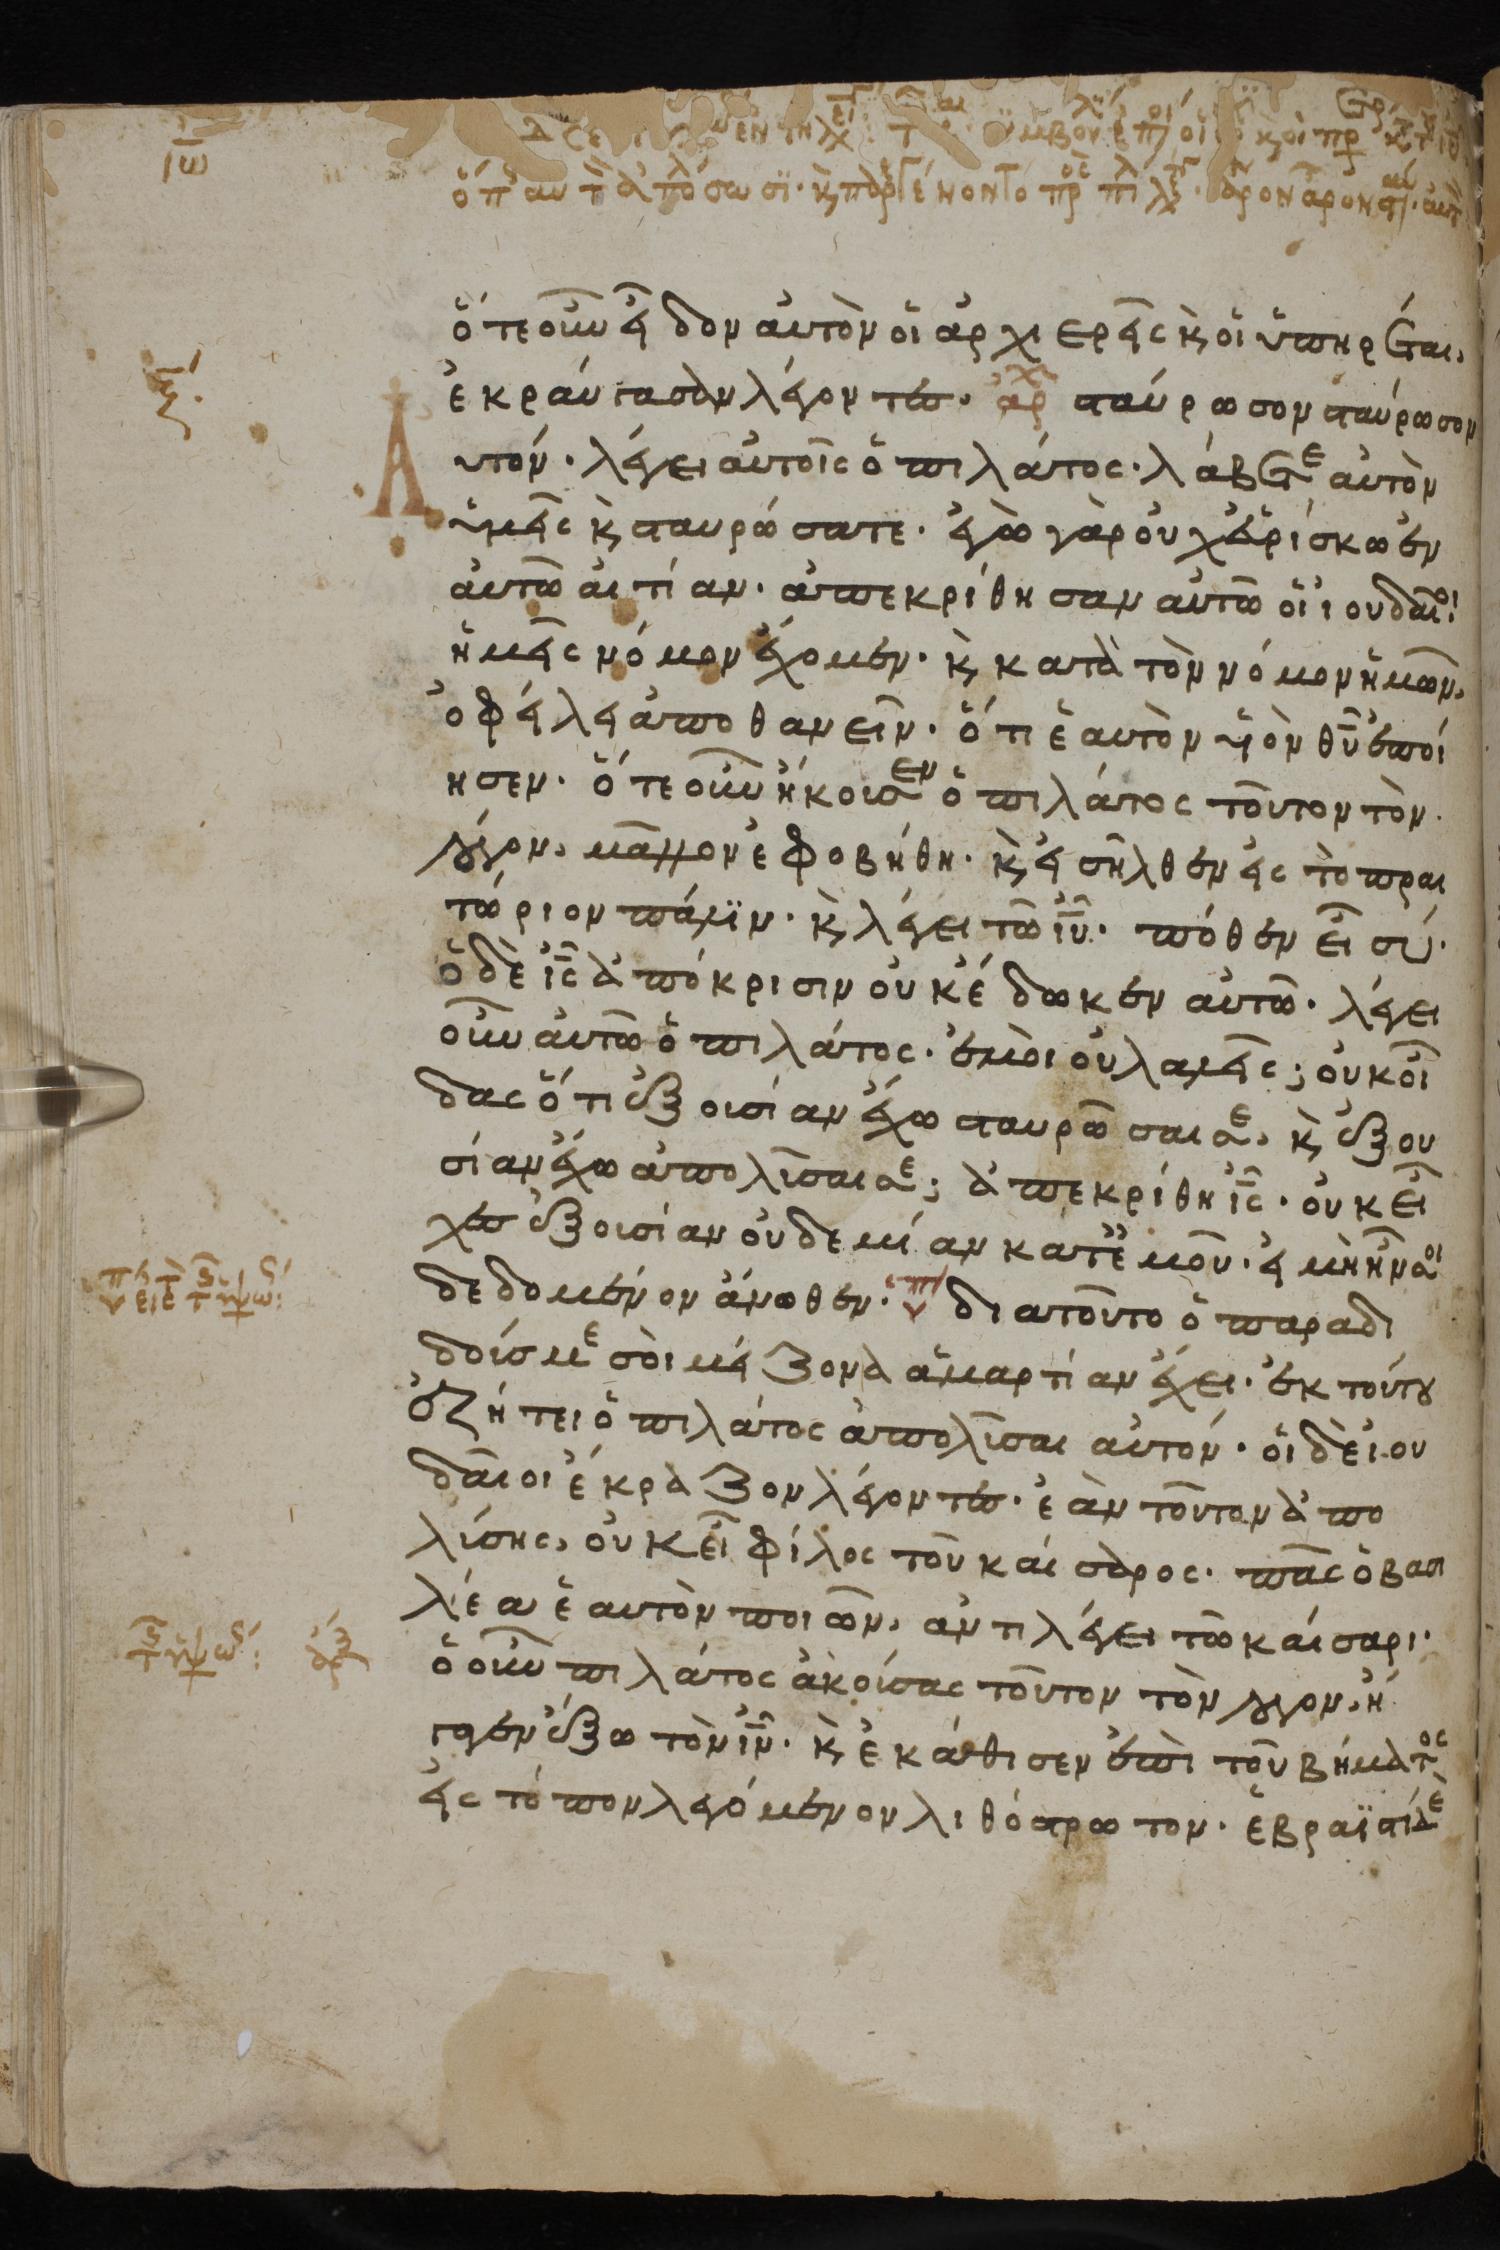 ιω
ὅπ αυτ ἀπόσωσϊ. κ παρεγένοντο πρ πιλ. ἆρον ἆρον στ. αυτ
ὅτε οὖν εἶδον αὐτὸν οἱ ἀρχιερεῖς κ οἱ ὑπηρέται,
ἐκραύγασαν λέγοντες. ἀρχ σταύρωσον σταύρωσον
αυτόν. λέγει αὐτοῖς ὁ πιλάτος. λάβετε αὐτὸν
ὑμεῖς κ σταυρώσατε. ἐγὼ γὰρ οὐχ εὑρίσκω ἐν
αὐτῶ αἰτίαν. ἀπεκρίθησαν αὐτῶ οἱ ιουδαῖοι
ἡμεῖς νόμον ἔχομεν. κ κατὰ τὸν νόμον ἡμῶν,
ὀφείλει ἀποθανεῖν. ὅτι ἑαυτὸν ὑιὸν θῦ ἐποί
ησεν. ὅτε οὖν ἤκουσεν ὁ πιλάτος τοῦτον τὸν
λόγον, μᾶλλον ἐφοβήθη. κ εἰσῆλθεν εἰς τὸ πραι
τώριον πάλϊν. κ λέγει τῶ ἰῦ. πόθεν εἶ σύ.
ὁ δὲ ἰς ἀπόκρισιν οὐκ ἔδωκεν αὐτῶ. λέγει
οὖν αὐτῶ ὁ πιλάτος. ἐμοὶ οὐ λαλεῖς; οὐκ οἶ
δας ὅτι ἐξουσίαν ἔχω σταυρῶσαι σε, κ ἐξου
σίαν ἔχω ἀπολῦσαι σε; ἀπεκρίθη ἰς. οὐκ εἶ
χες ἐξουσίαν οὐδεμίαν κατ ἐμοῦ. εἰ μὴ ἦν σοι
δεδομένον ἄνωθεν. διατοῦτο ὁ παραδι
δούς με σοὶ μείζονα ἁμαρτίαν ἔχει. ἐκ τούτου
ἐζήτει ὁ πιλάτος ἀπολῦσαι αὐτόν. οἱ δὲ ἰου
δαῖοι ἔκραζον λέγοντες. ἐὰν τοῦτον ἀπο
λύσης, οὐκ εἶ φίλος τοῦ καίσαρος. πᾶς ὁ βασι
λέα ἑαυτὸν ποιῶν, ἀντιλέγει τῶ καίσαρι.
ὁ οὖν πιλάτος ἀκούσας τοῦτον τὸν λόγον, ἤ
γαγεν ἔξω τὸν ἰν. κ ἐκάθισεν ἐπὶ τοῦ βήματος
εἰς τόπον λεγόμενον λιθόστρωτον. ἑβραϊστὶ δὲ